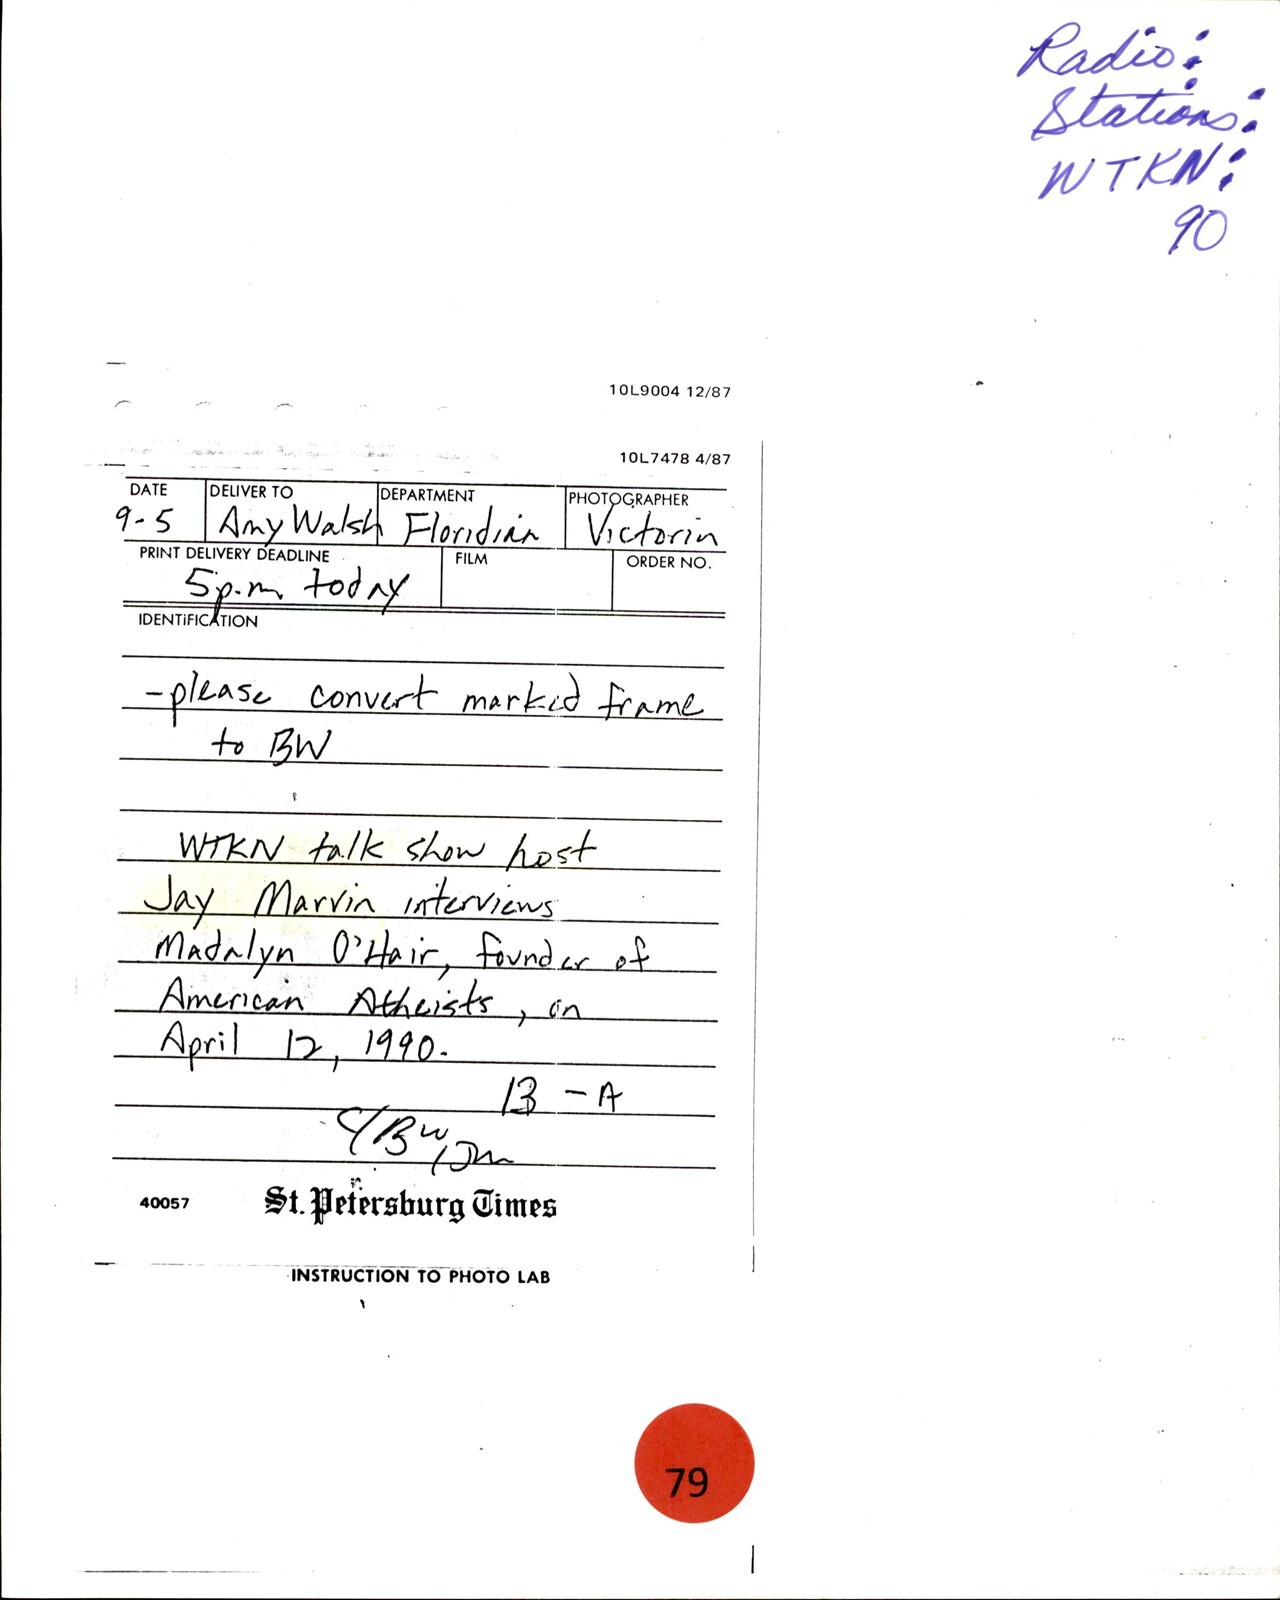 Radio:
Stations:
WTKN:
90
10L9004 12/87
10L7478 4/87
DATE DELIVER TO DEPARTMENT PHOTOGRAPHER
9-5 Amy Walsh Floridian Victorin
PRINT DELIVERY DEADLINE FILM ORDER NO.
5p.m. today
IDENTIFICATION
-please convert marked frame
to BW
WTKN talk show host
Jay Marvin interviews
Madalyn O'Hair, founder of
American Atheists, on
April 12, 1990.
13-A
40057 St. Petersburg Times
INSTRUCTION TO PHOTO LAB
79